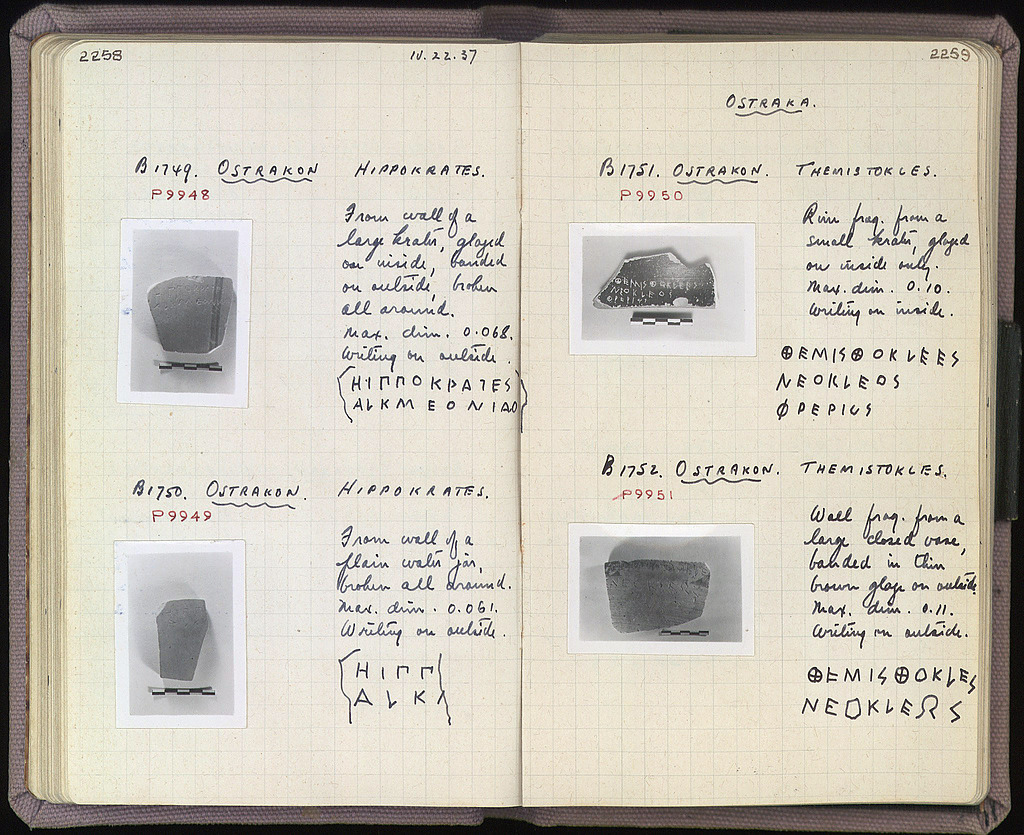 2258
IV. 22. 37
B1749. OSTRAKON HIPPOKRATES.
P9948
From wall of a
large krater, glazed
on inside, banded
on outside, broken
all around.
Max. dim. 0.068.
Writing on outside.
ΗΙΠΠΟΚΡΑΤΕS
ΑLΚΜΕΟΝΙΔΟ
B1750. OSTRAKON. HIPPOKRATES.
P9949
From wall of a
plain water jar,
broken all around.
Max. dim. 0.061.
Writing on outside.
ΗΙΠΠ
ΑLΚ
2259
OSTRAKA.
B1751. OSTRAKON. THEMISTOKLES.
P9950
Rim frag. from a
small krater, glazed
on inside only.
Max. dim. 0.10.
Writing on inside.
⊕ΕΜΙS⊕ΟΚLΕΕS
ΝΕΟΚLΕΟS
ΦΡΕΡΙΟS
B1752. OSTRAKON. THEMISTOKLES.
P9951
Wall frag. from a
large closed vase,
banded in thin
brown glaze on outside.
Max. dim. 0.11.
Writing on outside.
⊕ΕΜΙS⊕ΟΚLΕS
ΝΕΟΚLΕΟS